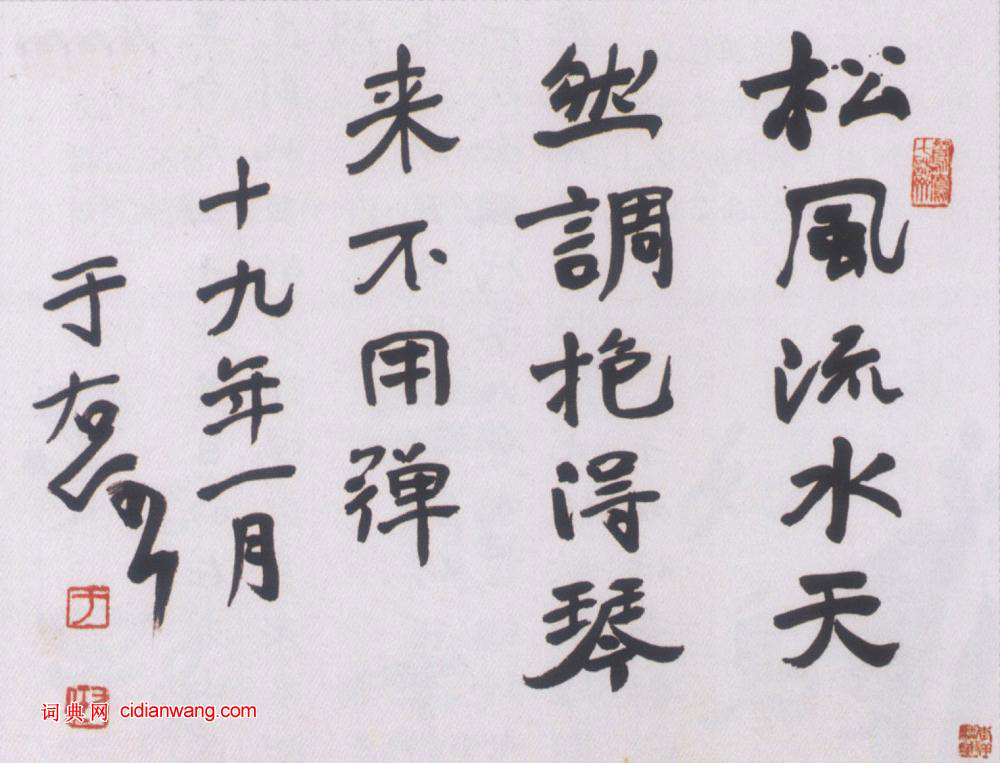 松風流水天
然調抱得琴
来不用彈
十九年一月
于右任
于
词典网 cidianwang.com